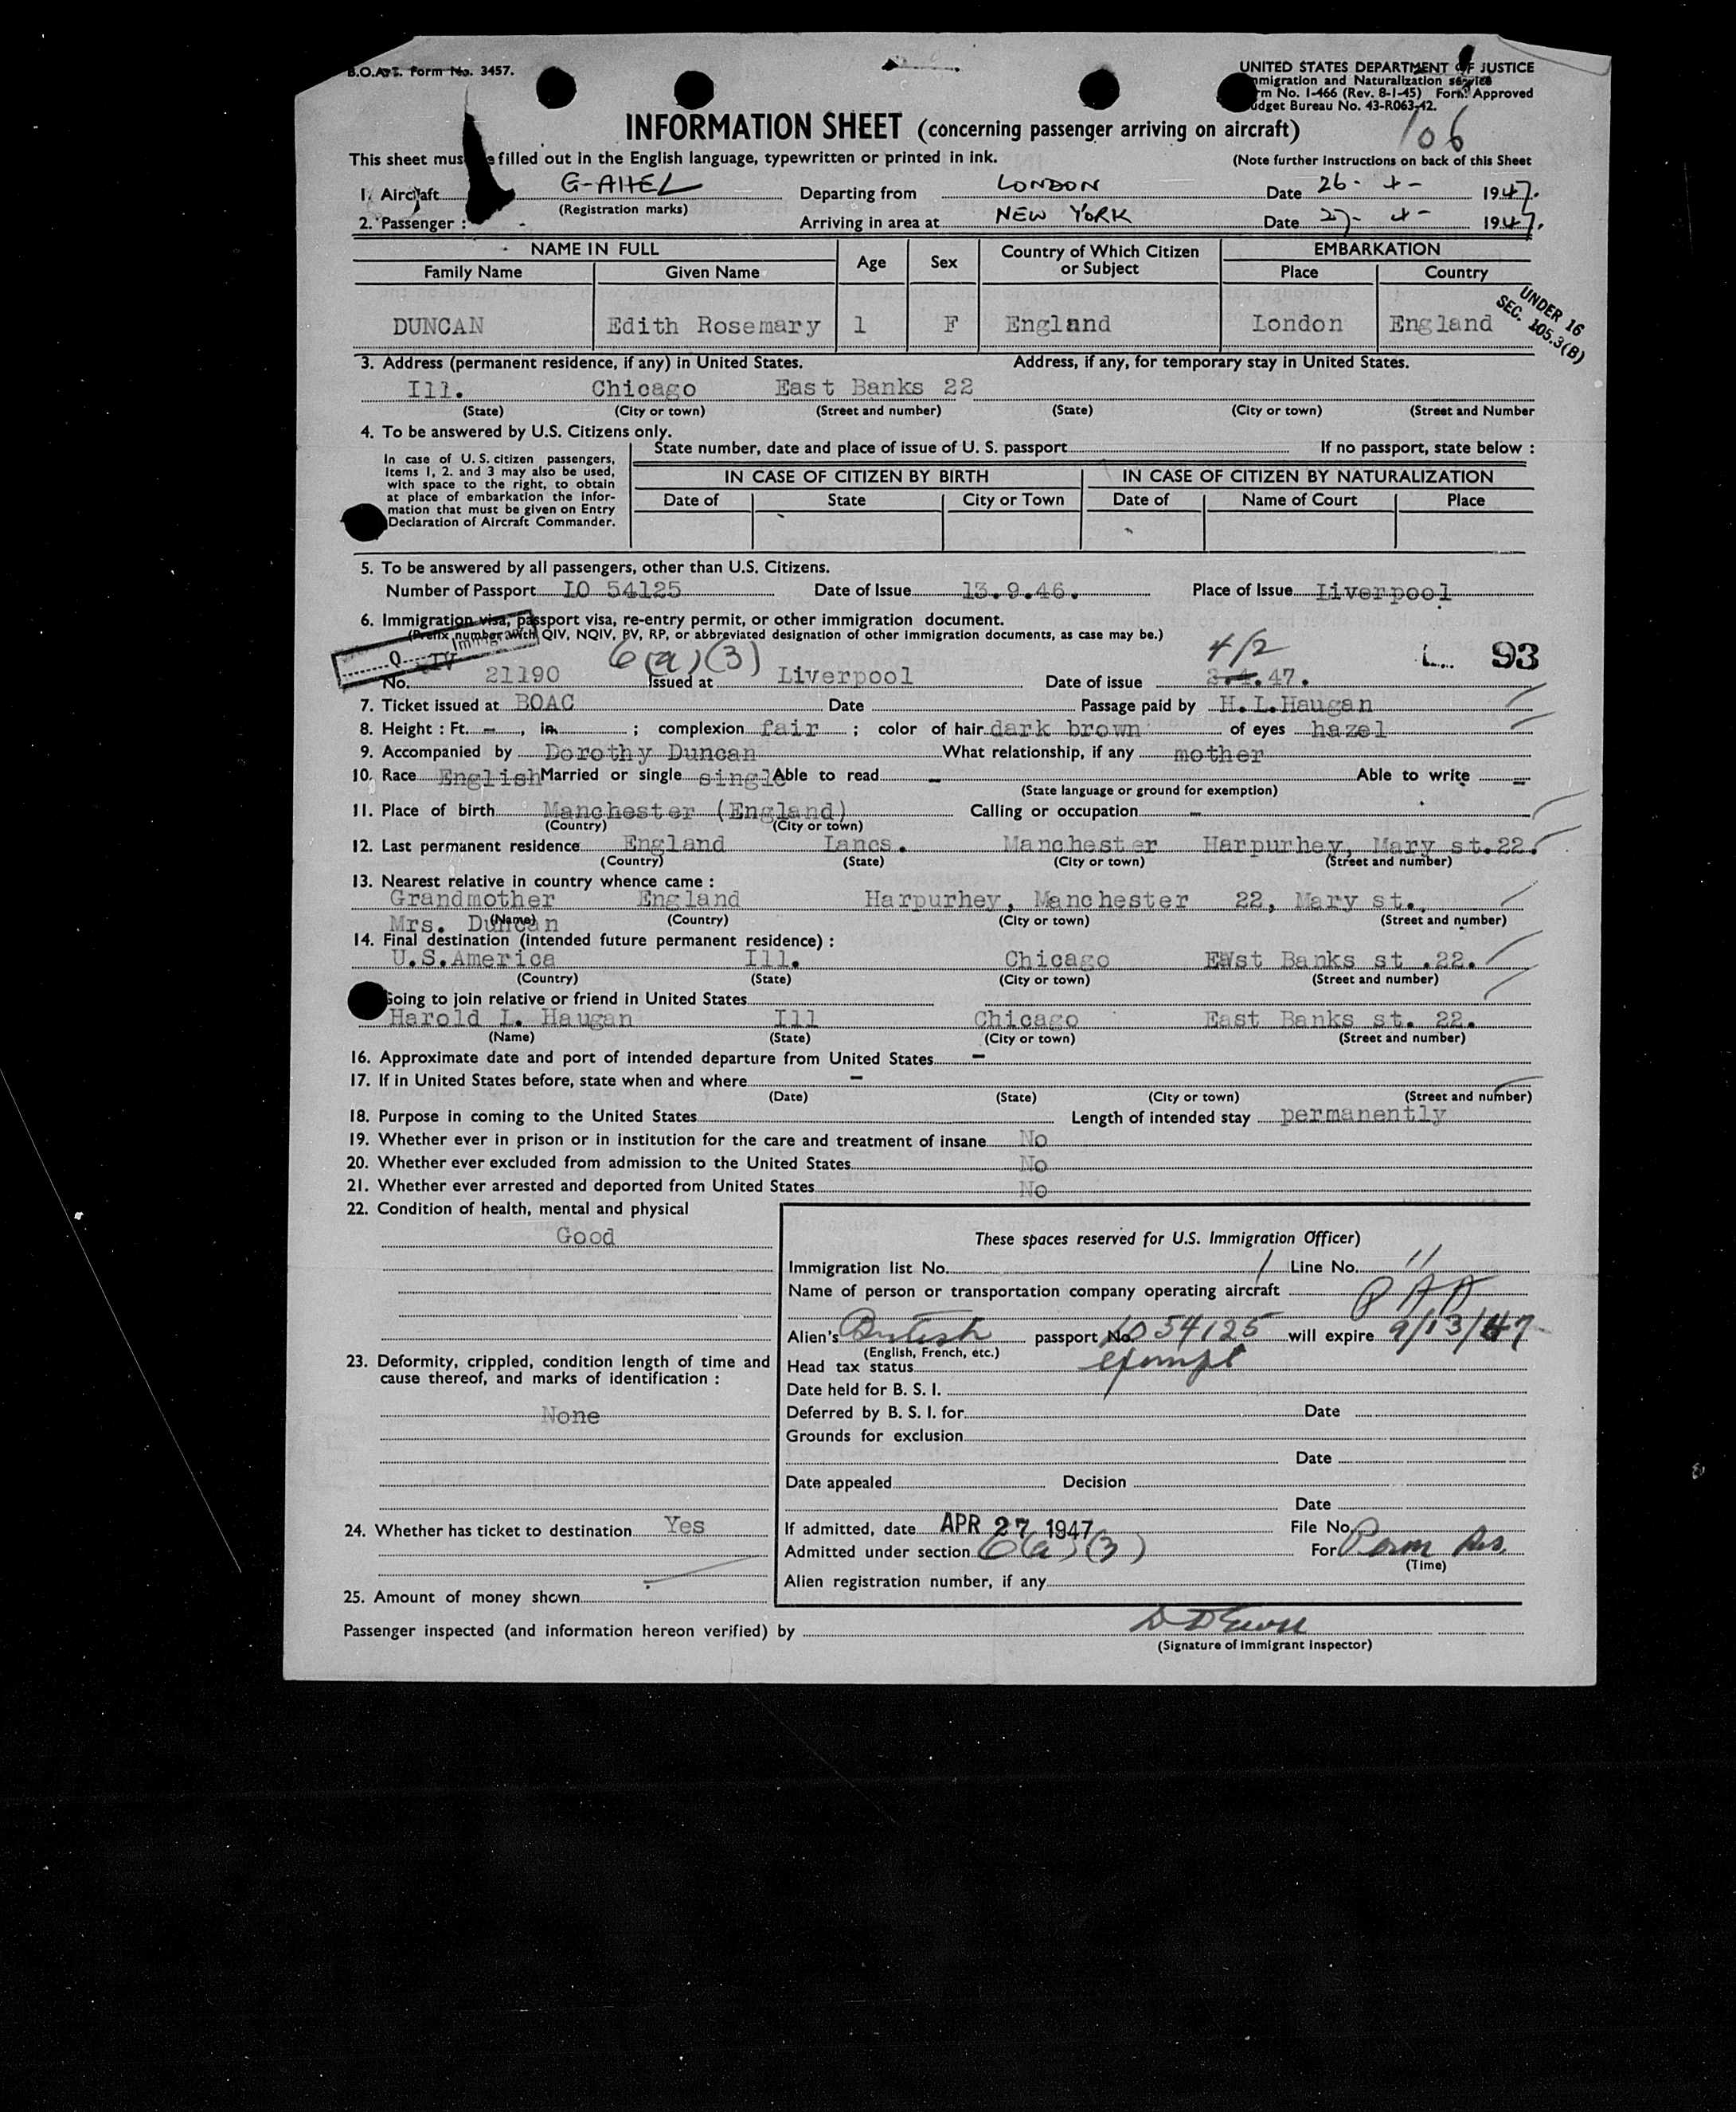 B.O.A.C. Form No. 3457.
UNITED STATES DEPARTMENT OF JUSTICE
Immigration and Naturalization service
Form No. I-466 (Rev. 8-1-45) Form Approved
Budget Bureau No. 43-R063-42.
106
INFORMATION SHEET (concerning passenger arriving on aircraft)
This sheet must be filled out in the English language, typewritten or printed in ink. (Note further instructions on back of this Sheet
1. Aircraft G-AHEL Departing from LONDON Date 26- 4- 1947.
(Registration marks)
2. Passenger : Arriving in area at NEW YORK Date 27- 4- 1947.
NAME IN FULL Age Sex Country of Which Citizen or Subject EMBARKATION
Family Name Given Name Place Country
DUNCAN Edith Rosemary 1 F England London England
UNDER 16
SEC. 105.3(B)
3. Address (permanent residence, if any) in United States. Address, if any, for temporary stay in United States.
Ill. Chicago East Banks 22
(State) (City or town) (Street and number) (State) (City or town) (Street and Number
4. To be answered by U.S. Citizens only.
State number, date and place of issue of U. S. passport If no passport, state below :
In case of U. S. citizen passengers,
items 1, 2. and 3 may also be used,
with space to the right, to obtain
at place of embarkation the infor-
mation that must be given on Entry
Declaration of Aircraft Commander.
IN CASE OF CITIZEN BY BIRTH IN CASE OF CITIZEN BY NATURALIZATION
Date of State City or Town Date of Name of Court Place
5. To be answered by all passengers, other than U.S. Citizens.
Number of Passport LO 54125 Date of Issue 13.9.46. Place of Issue Liverpool
6. Immigration visa, passport visa, re-entry permit, or other immigration document.
(Prefix number with QIV, NQIV, PV, RP, or abbreviated designation of other immigration documents, as case may be.)
Q IV Immigration
6(a)(3) 4/2 93
No. 21190 Issued at Liverpool Date of issue 2.4.47.
7. Ticket issued at BOAC Date Passage paid by H.L.Haugan
8. Height : Ft. -, in. ; complexion fair ; color of hair dark brown of eyes hazel
9. Accompanied by Dorothy Duncan What relationship, if any mother
10. Race English Married or single single Able to read - Able to write -
(State language or ground for exemption)
11. Place of birth Manchester (England) Calling or occupation -
(Country) (City or town)
12. Last permanent residence England Lancs. Manchester Harpurhey, Mary st.22.
(Country) (State) (City or town) (Street and number)
13. Nearest relative in country whence came :
Grandmother England Harpurhey, Manchester 22, Mary st.
Mrs. Duncan (Name) (Country) (City or town) (Street and number)
14. Final destination (intended future permanent residence) :
U.S.America Ill. Chicago East Banks st .22.
(Country) (State) (City or town) (Street and number)
Going to join relative or friend in United States
Harold L. Haugan Ill Chicago East Banks st. 22.
(Name) (State) (City or town) (Street and number)
16. Approximate date and port of intended departure from United States -
17. If in United States before, state when and where -
(Date) (State) (City or town) (Street and number)
18. Purpose in coming to the United States Length of intended stay permanently
19. Whether ever in prison or in institution for the care and treatment of insane No
20. Whether ever excluded from admission to the United States No
21. Whether ever arrested and deported from United States No
22. Condition of health, mental and physical
Good
23. Deformity, crippled, condition length of time and
cause thereof, and marks of identification :
None
24. Whether has ticket to destination Yes
25. Amount of money shown
These spaces reserved for U.S. Immigration Officer)
Immigration list No. 1 Line No. 11
Name of person or transportation company operating aircraft PAA
Alien's British passport No. LO 54125 will expire 9/13/47
(English, French, etc.)
Head tax status exempt
Date held for B. S. I.
Deferred by B. S. I. for Date
Grounds for exclusion
Date
Date appealed Decision
Date
If admitted, date APR 27 1947 File No.
Admitted under section 6(a)(3) For Perm Res.
(Time)
Alien registration number, if any
Passenger inspected (and information hereon verified) by
(Signature of Immigrant Inspector)